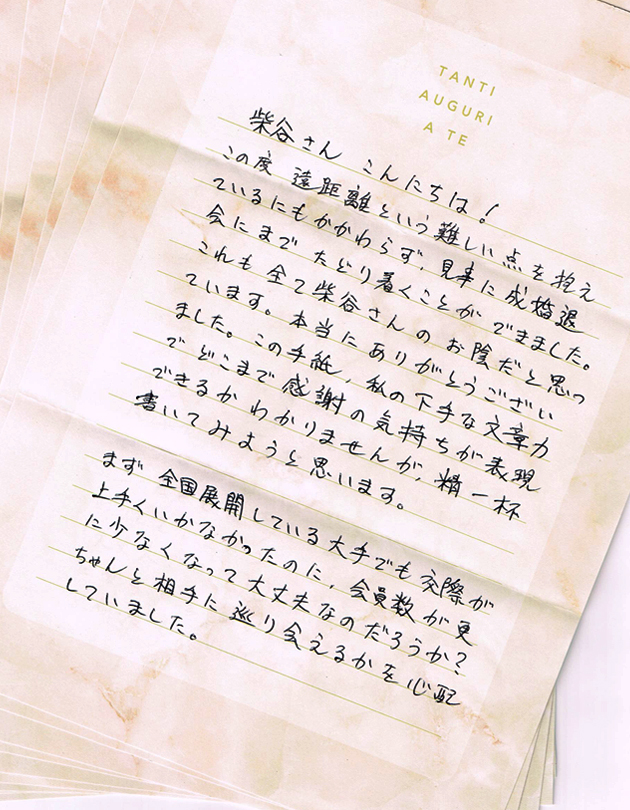 TANTI
AUGURI
A TE
柴谷さん こんにちは!
この度 遠距離という難しい点を抱え
ているにもかかわらず、見事に成婚退
会にまで たどり着くことが できました。
これも 全て柴谷さんの お陰だと思っ
ています。本当に ありがとうござい
ました。この手紙、私の下手な文章力
で どこまで 感謝の気持ちが 表現
できるか わかりませんが、精一杯
書いてみようと思います。
まず 全国展開している大手でも 交際が
上手くいかなかったのに、会員数が更
に少なくなって大丈夫なのだろうか?
ちゃんと相手に巡り会えるかを心配
していました。